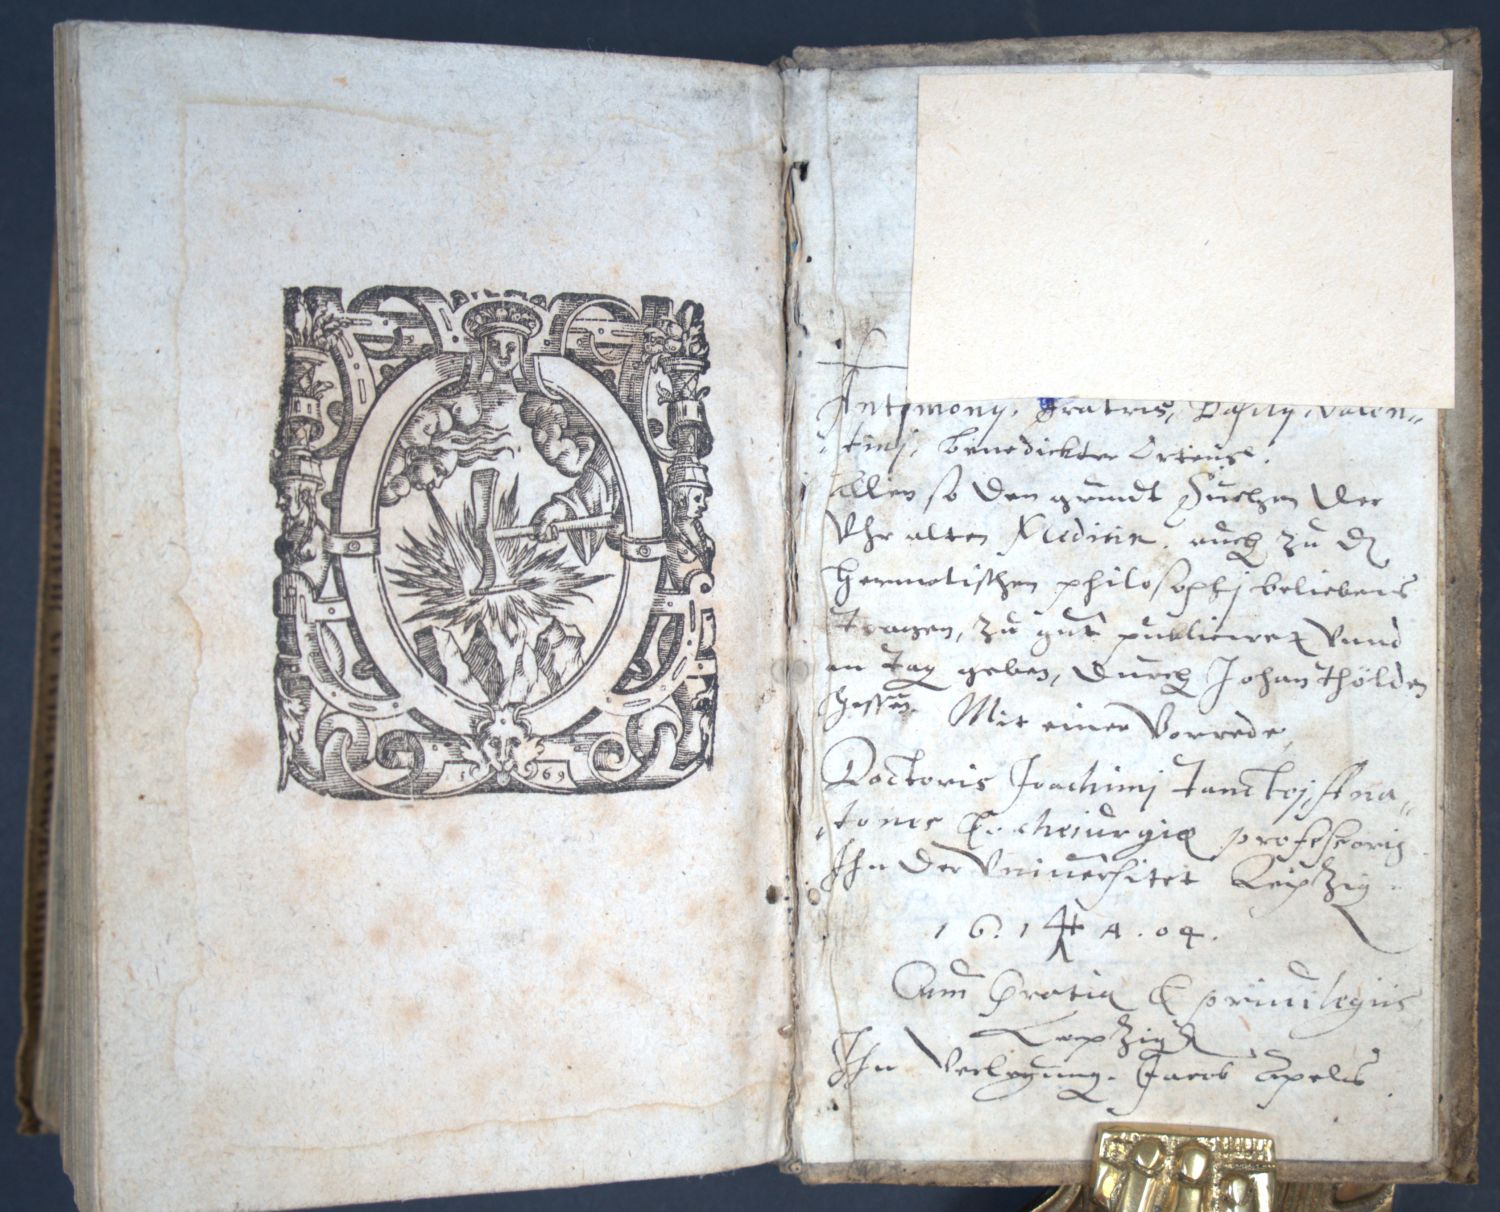 15 69
Antimony, Fratris, Basily, Valen„
„tinj, benedickter Ortens.
allen so den grundt Suchen der
Vhr alten Medicin. auch zu d
hermetischen philosophj beliebens
tragen, zu gut publiciret Vnnd
an tag geben, durch Johan Thölden
Hessum. Mit einer Vorrede,
Doctoris Joachimj Tanckej,
„tomes & cheiurgiæ professoris
Ihn der Vniuersitet Leipzig.
16. 14 A. 04.
Cum Gratia & priuilegiis
Leipzig
Ihn Verlegung. Jacob Apels